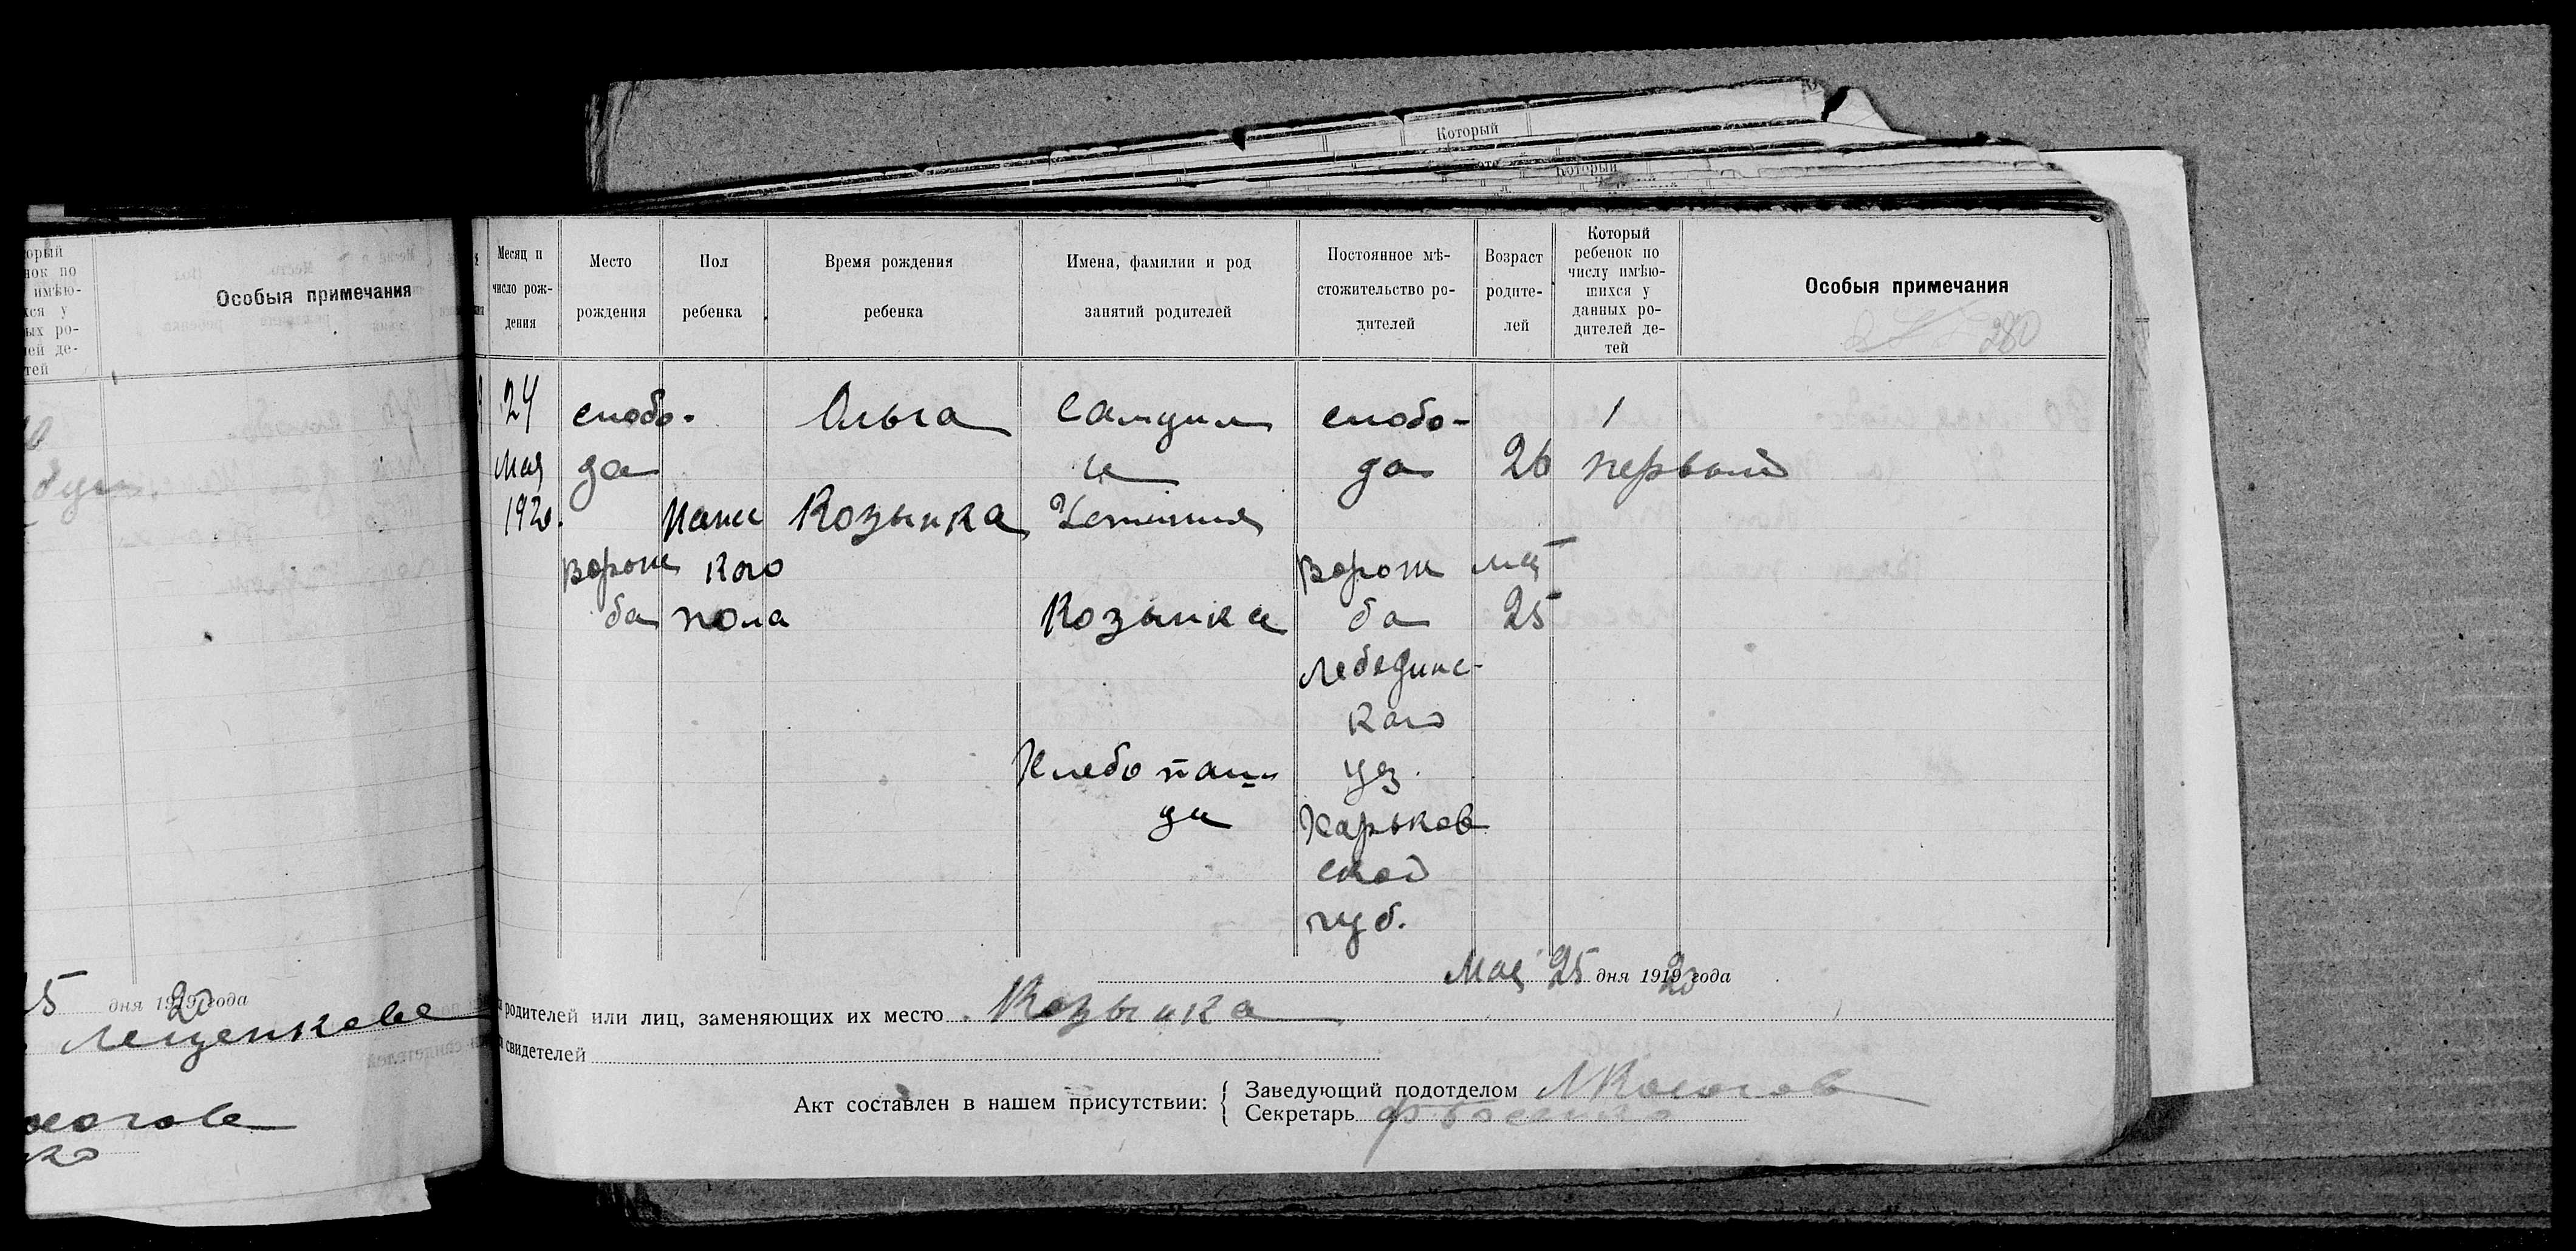 Который
Который
орый
нок по
имѣю-
хся у
ых ро-
лей де-
тей
Особыя примечания
5 дня 1919 20 года
Лещенкова
Месяц и
число рож-
дения
Место
рождения
Пол
ребенка
Время рождения
ребенка
Имена, фамилии и род
занятий родителей
Постоянное мѣ-
стожительство ро-
дителей
Возраст
родите-
лей
Который
ребенок по
числу имѣю-
шихся у
данных ро-
дителей де-
тей
Особыя примечания
280
24
мая
1920.
слобо-
да
Ворож
ба
Женс
кого
пола
Ольга
Козынка
Самуил
и
Устиния
Козынка
Хлебопаш-
цы
слобо-
да
Ворож
ба
Лебединс-
кого
уз.
Харьков
ской
губ.
26
мат
25
1
первый
Мая 25 дня 1919 20 года
родителей или лиц, заменяющих их место Козынка
свидетелей
Акт составлен в нашем присутствии:
Заведующий подотделом
Секретарь